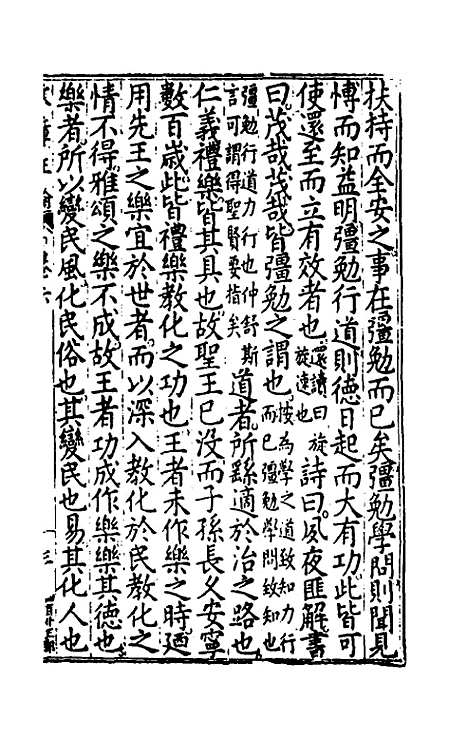 扶持而全安之事在彊勉而已矣彊勉學問則聞見
博而知益明彊勉行道則德日起而大有功此皆可
使還至而立有效者也還讀曰旋旋速也詩曰夙夜匪解書
曰茂哉茂哉皆彊勉之謂也按為學之道致知力行而已彊勉學問致知也
彊勉行道力行也仲舒斯言可謂得聖賢要指矣道者所繇適於治之路也
仁義禮樂皆其具也故聖王已没而子孫長久安寧
數百歲此皆禮樂教化之功也王者未作樂之時廼
用先王之樂宜於世者而以深入教化於民教化之
情不得雅頌之樂不成故王者功成作樂樂其德也
樂者所以變民風化民俗也其變民也易其化人也